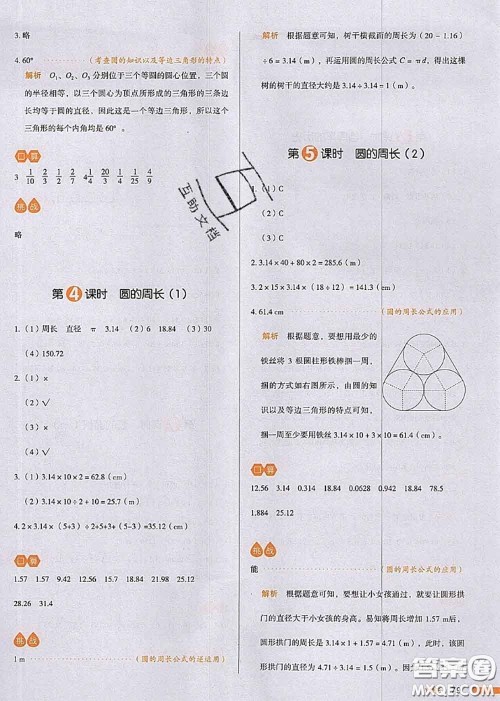 3. 略
4. 60° (考查圆的知识以及等边三角形的特点)
解析 O₁、O₂、O₃分别位于三个等圆的圆心位置，三个圆
的半径相等，以三个圆心为顶点所形成的三角形的三条边
长均等于圆的直径，因此这是一个等边三角形，所以这个
三角形的每个内角均是 60°。
口算
3 1/10 2/3 1/2 4/7 4 1/2 20/3 1/25 1/4 1/10
挑战
略
第4课时 圆的周长（1）
1.（1）周长 直径 π 3.14（2）6 18.84（3）30
（4）150.72
2.（1）×
（2）√
（3）×
（4）√
3.（1）3.14×10×2＝62.8（cm）
（2）3.14×10÷2＋10＝25.7（m）
4. 2×3.14×（5+3）÷2+5+（5+3）＝35.12（cm）
口算
1.57 9.42 12.56 15.7 18.84 21.98 25.12
28.26 31.4
挑战
1 m (圆的周长公式的逆运用)
解析 根据题意可知，树干横截面的周长为（20－1.16）
÷6＝3.14（m），再运用圆的周长公式 C＝πd，得出这棵
树的树干的直径大约是 3.14÷3.14＝1（m）。
第5课时 圆的周长（2）
1.（1）C
（2）C
（3）C
2. 3.14×40÷2×80＝285.6（m）
3. 2×15×3.14×（18÷12）＝141.3（cm）
4. 61.4 cm (圆的周长公式的应用)
解析 根据题意，要想用最少的
铁丝将 3 根圆柱形铁棒捆一周，
捆的方式如右图所示，由圆的知
识以及等边三角形的特点可知，
捆一周至少要用铁丝 3.14×10+3×10＝61.4（cm）。
口算
12.56 3.14 0.314 18.84 0.0628 0.942 18.84 78.5
1.884 25.12
挑战
能 (圆的周长公式的应用)
解析 根据题意可知，要想让小女孩通过，就要让圆形拱
门的直径大于小女孩的身高。易知将周长增加 1.57 m后，
圆形拱门的周长是 3.14×1+1.57＝4.71（m），此时，该圆
形拱门的直径为 4.71÷3.14＝1.5（m）。
互助文档
答案圈
MXQE.COM